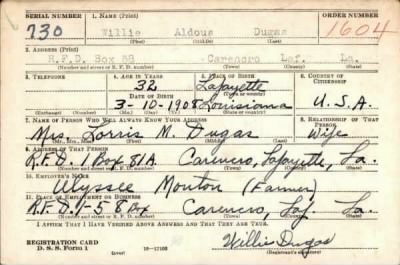 SERIAL NUMBER 1. NAME (Print) ORDER NUMBER
730 Willie Aldous Dugas 1604
(First) (Middle) (Last)
2. ADDRESS (Print)
R.F.D. Box Carencro Laf. La.
(Number and street or R. F. D. number) (Town) (County) (State)
3. TELEPHONE 4. AGE IN YEARS 5. PLACE OF BIRTH 6. COUNTRY OF CITIZENSHIP
32 Lafayette
DATE OF BIRTH (Town or county)
3-10-1908 Louisiana U.S.A.
7. NAME OF PERSON WHO WILL ALWAYS KNOW YOUR ADDRESS 8. RELATIONSHIP OF THAT PERSON
Mrs. Lorris M. Dugas Wife
9. ADDRESS OF THAT PERSON
R.F.D. 1 Box 81A. Carencro, Lafayette, La.
(Number and street or R. F. D. number) (Town) (County) (State)
10. EMPLOYER'S NAME
Ulyssee Mouton (Farmer)
11. PLACE OF EMPLOYMENT OR BUSINESS
R.F.D. 1-58 Box Carencro, Laf. La.
(Number and street or R. F. D. number) (Town) (County) (State)
I AFFIRM THAT I HAVE VERIFIED ABOVE ANSWERS AND THAT THEY ARE TRUE.
REGISTRATION CARD
D. S. S. Form 1 (over) Willie Dugas
(Registrant's signature)